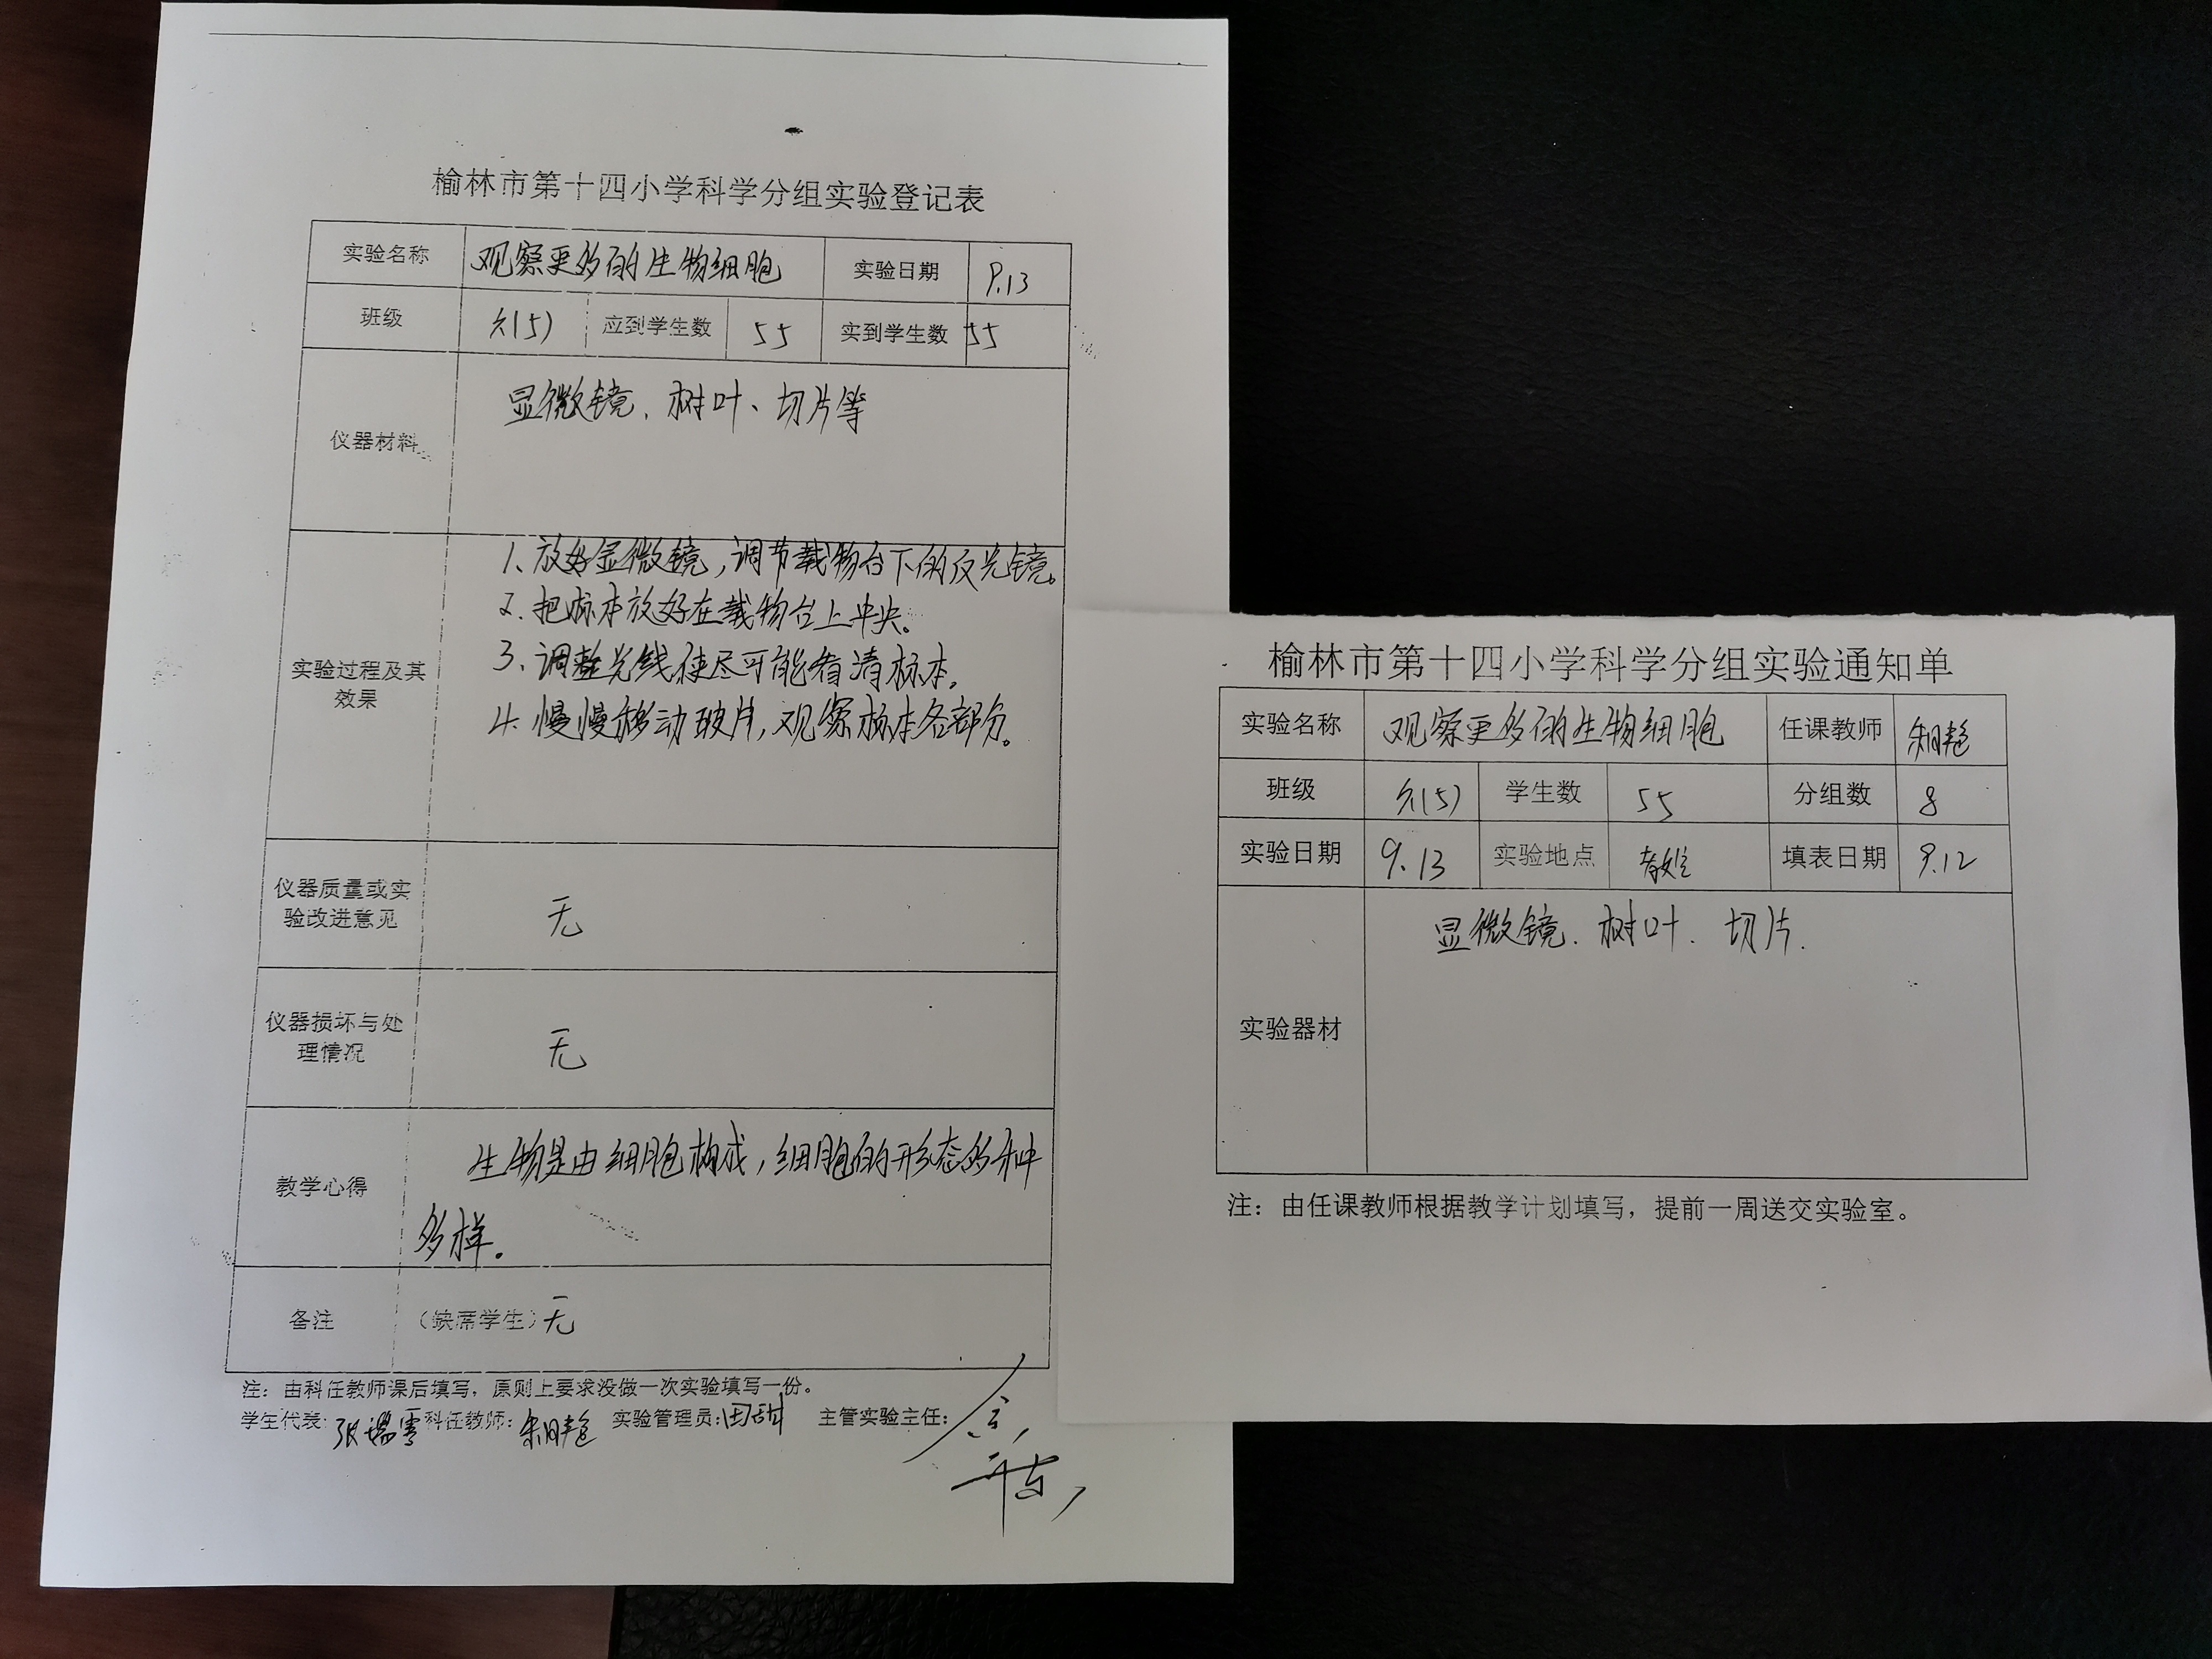 榆林市第十四小学科学分组实验登记表
实验名称 观察更多的生物细胞 实验日期 9.13
班级 六(5) 应到学生数 55 实到学生数 55
仪器材料 显微镜、树叶、切片等
实验过程及其
效果
1、放好显微镜,调节载物台下的反光镜。
2、把标本放好在载物台上中央。
3、调整光线使尽可能看清标本。
4、慢慢移动玻片,观察标本各部分。
仪器质量或实
验改进意见
无
仪器损坏与处
理情况
无
教学心得
生物是由细胞构成,细胞的形态多种
多样。
备注 (缺席学生)无
注:由科任教师课后填写,原则上要求没做一次实验填写一份。
学生代表: 科任教师: 实验管理员:田甜 主管实验主任:
榆林市第十四小学科学分组实验通知单
实验名称 观察更多的生物细胞 任课教师
班级 六(5) 学生数 55 分组数 8
实验日期 9.13 实验地点 填表日期 9.12
实验器材 显微镜、树叶、切片.
注:由任课教师根据教学计划填写,提前一周送交实验室。